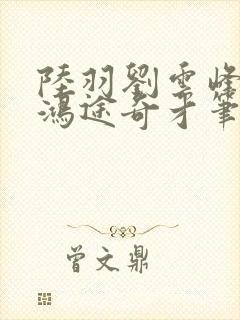 陸羽劉雲峰
鴻途奇才筆
曾文鼎